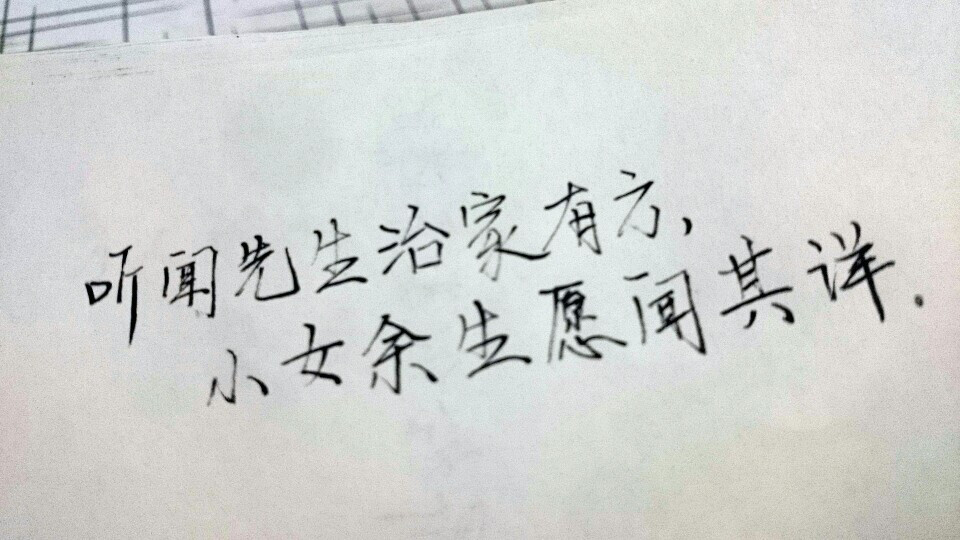 听闻先生治家有方,
小女余生愿闻其详.